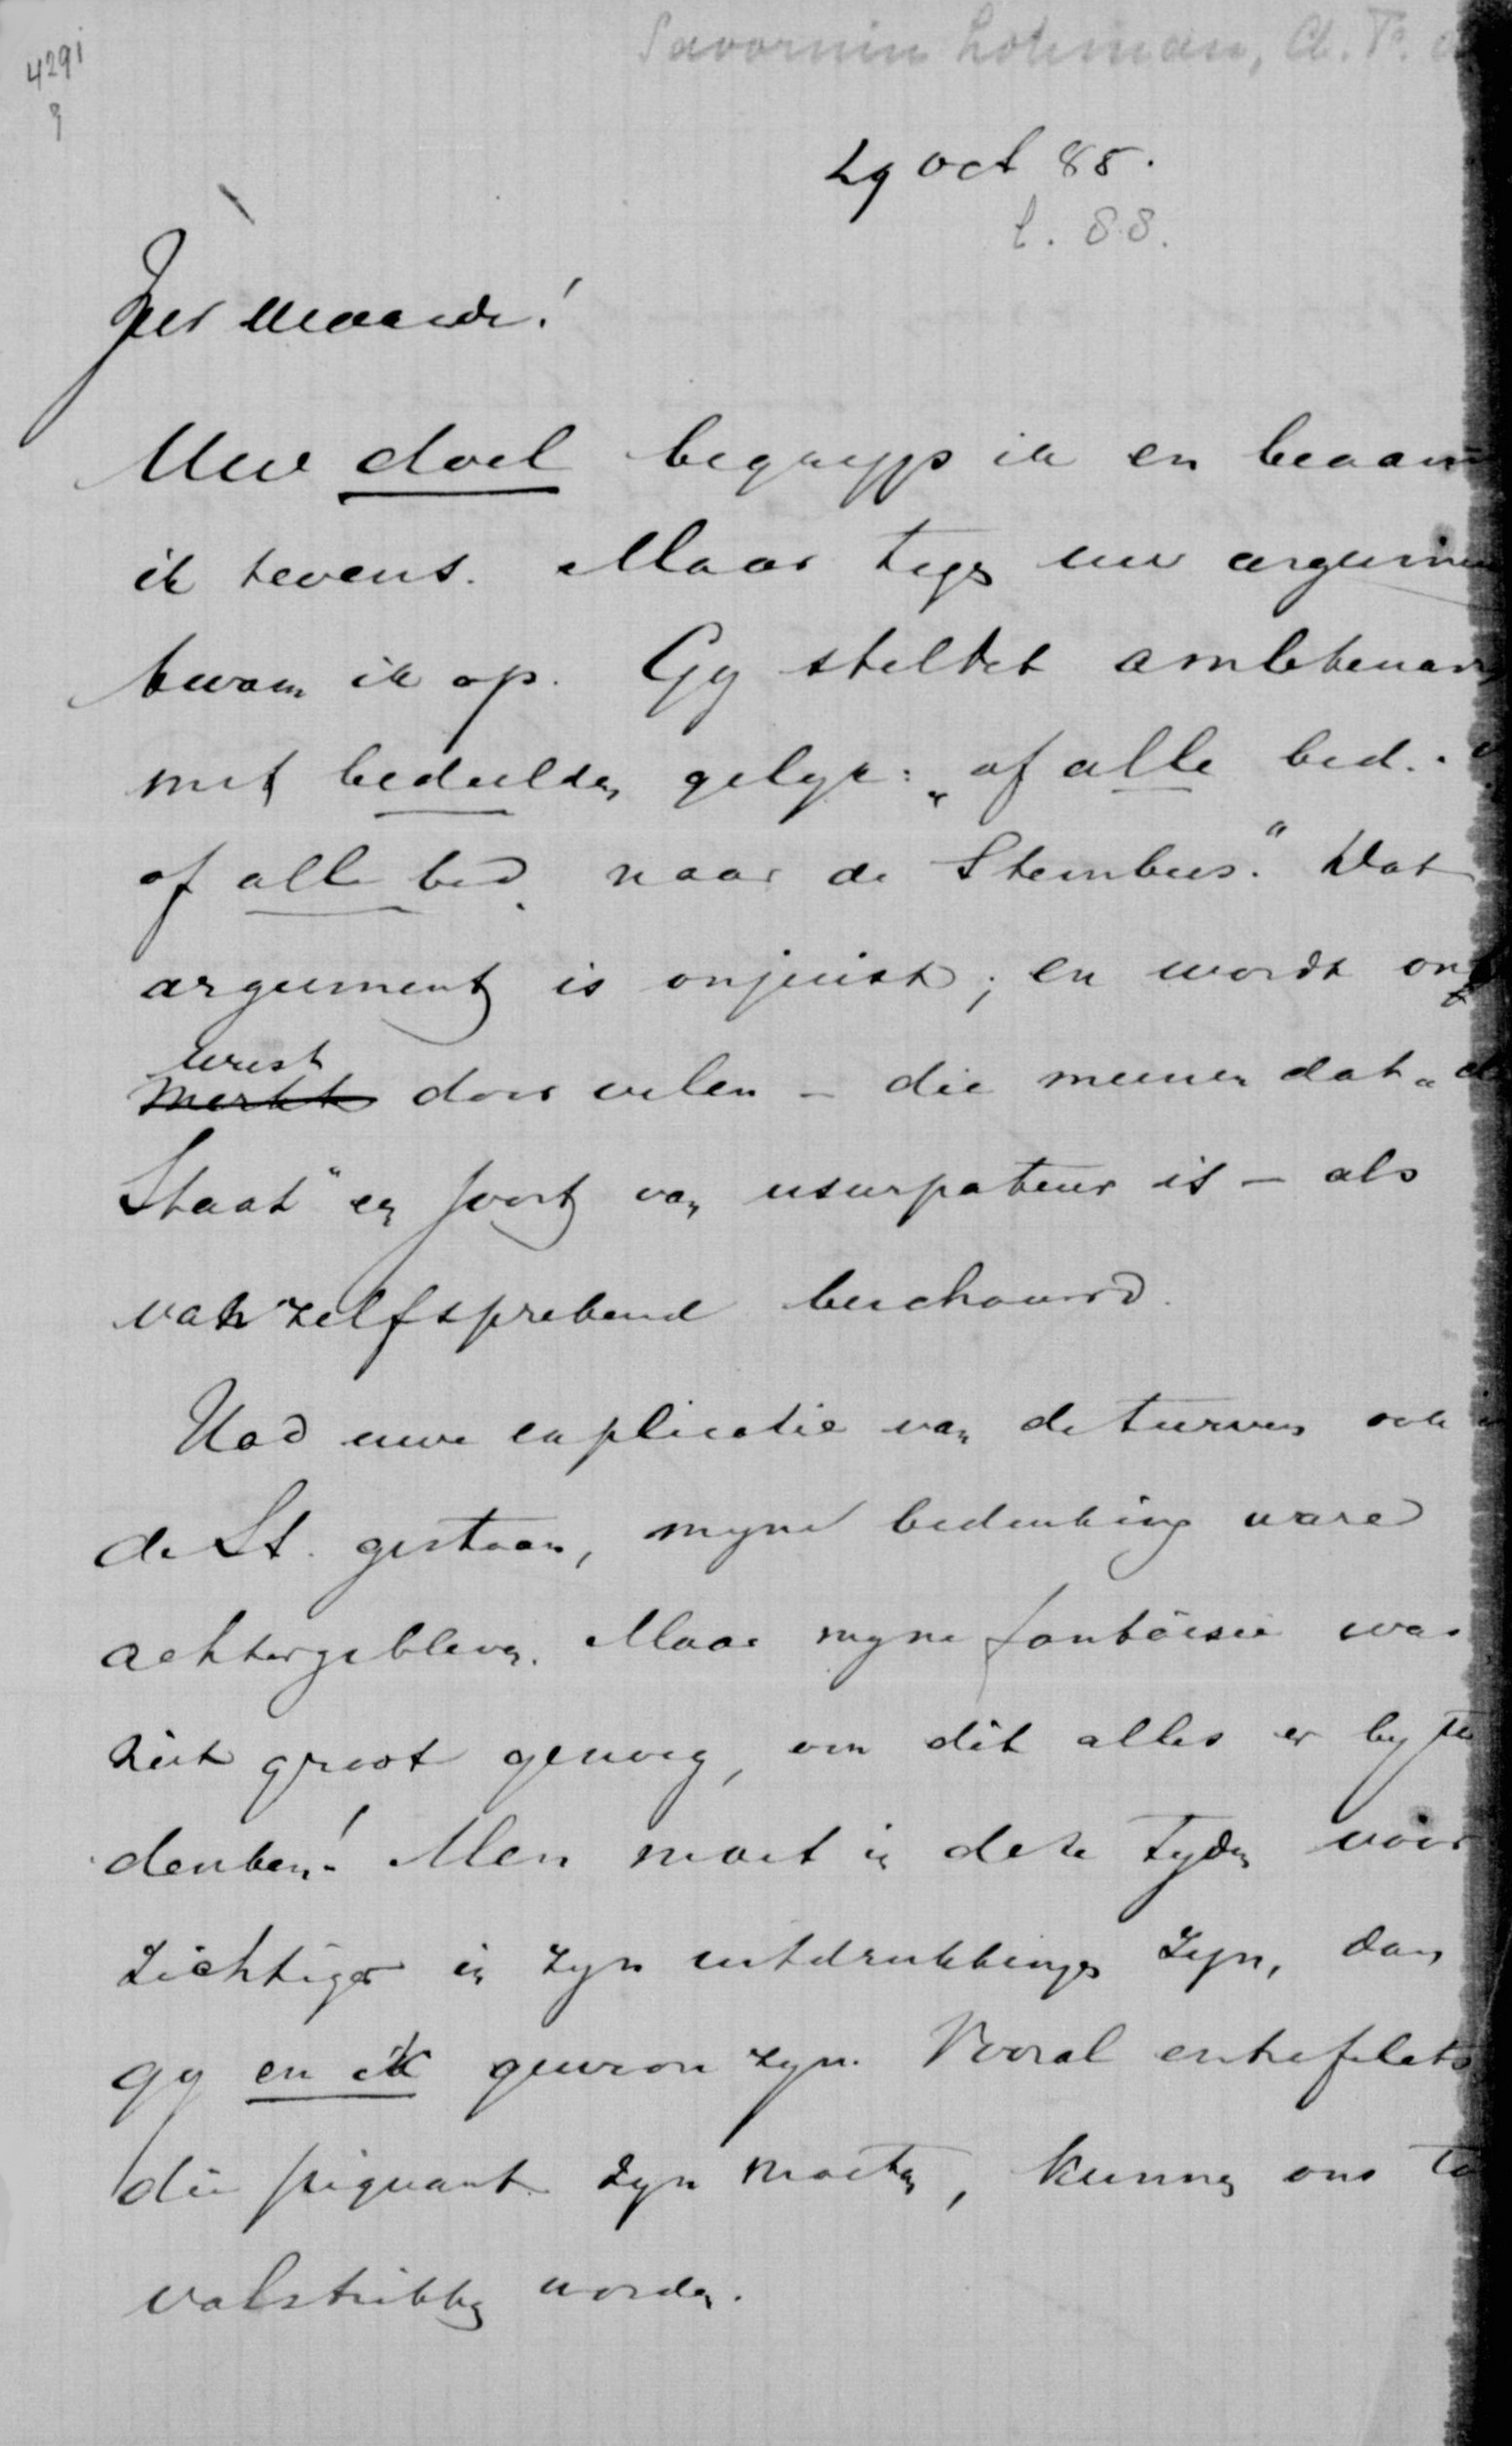 Savornin Lohman, A. F. d
4291
29 oct 85.
l. 88.
Zeer Waarde!
Uw doel begryp ik en beaam
ik tevens. Maar tegen uw argumen
kwam ik op. Gy steldet ambtenaren
met bedeelden gelyk: „of alle bed.
of alle bed. naar de Stembus." Dat
argument is onjuist; en wordt
juist
merkt door velen – die meenen dat „de
Staat" een soort van usurpateur is – als
vanzelfsprekend beschouwd.
Had uwe explicatie van de turven ook
de St. gestaan, myne bedenking ware
achtergebleven. Maar myne fantaisie was
niet groot genoeg, om dit alles er by te
denken! Men moet in deze tyden voor
zichtiger in zyn uitdrukkingen zyn, dan
gy en ik gewoon zyn. Vooral entrefilets
die piquant zyn moeten, kunnen ons to
valstrikken worden.